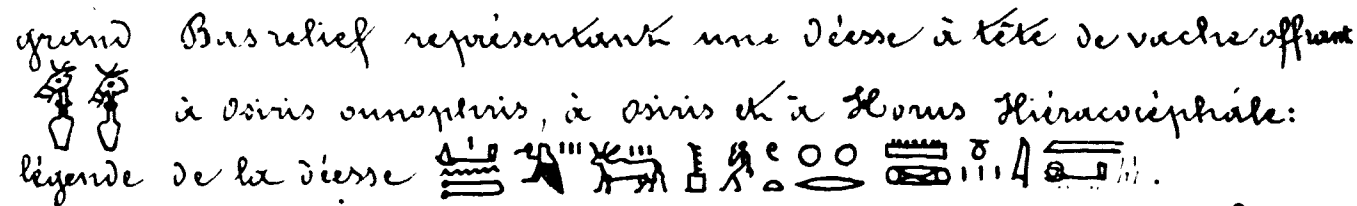 grand Basrelief représentant une déesse à tête de vache offrant
à osiris ounophris, à osiris et à Horus Hiéracocéphale:
légende de la déesse